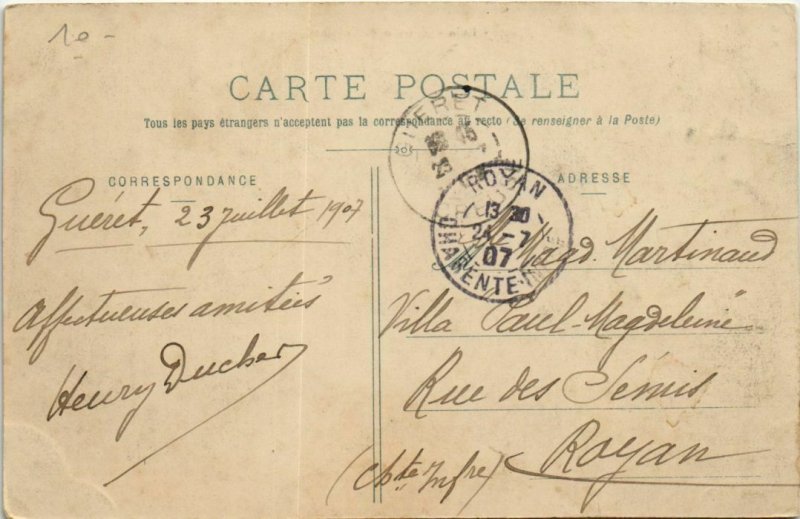 10-
CARTE POSTALE
Tous les pays étrangers n'acceptent pas la correspondance au recto (se renseigner à la Poste)
CORRESPONDANCE
Guéret, 23 juillet 1907
Affectueuses amitiés
Henry Ducher
GUERET
ROYAN
13 30
24 - 7
07
CHARENTE-INF
ADRESSE
Magd. Martinaud
Villa Paul-Magdeleine
Rue des Semis
Royan
(Chte Infre)